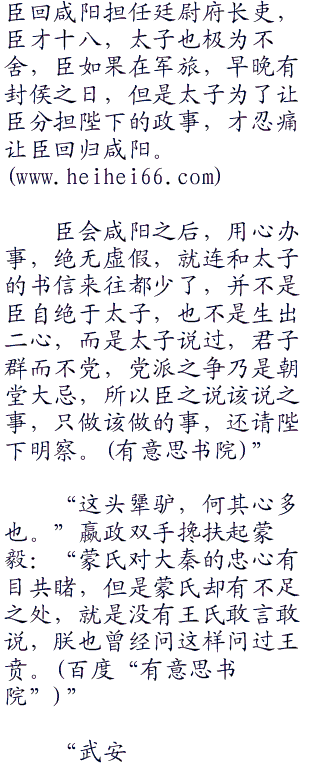 臣回咸阳担任廷尉府长吏，
臣才十八，太子也极为不
舍，臣如果在军旅，早晚有
封侯之日，但是太子为了让
臣分担陛下的政事，才忍痛
让臣回归咸阳。
(www.heihei66.com)
臣会咸阳之后，用心办
事，绝无虚假，就连和太子
的书信来往都少了，并不是
臣自绝于太子，也不是生出
二心，而是太子说过，君子
群而不党，党派之争乃是朝
堂大忌，所以臣之说该说之
事，只做该做的事，还请陛
下明察。(有意思书院)”
“这头犟驴，何其心多
也。”嬴政双手搀扶起蒙
毅：“蒙氏对大秦的忠心有
目共睹，但是蒙氏却有不足
之处，就是没有王氏敢言敢
说，朕也曾经问这样问过王
贲。(百度“有意思书
院”)”
“武安